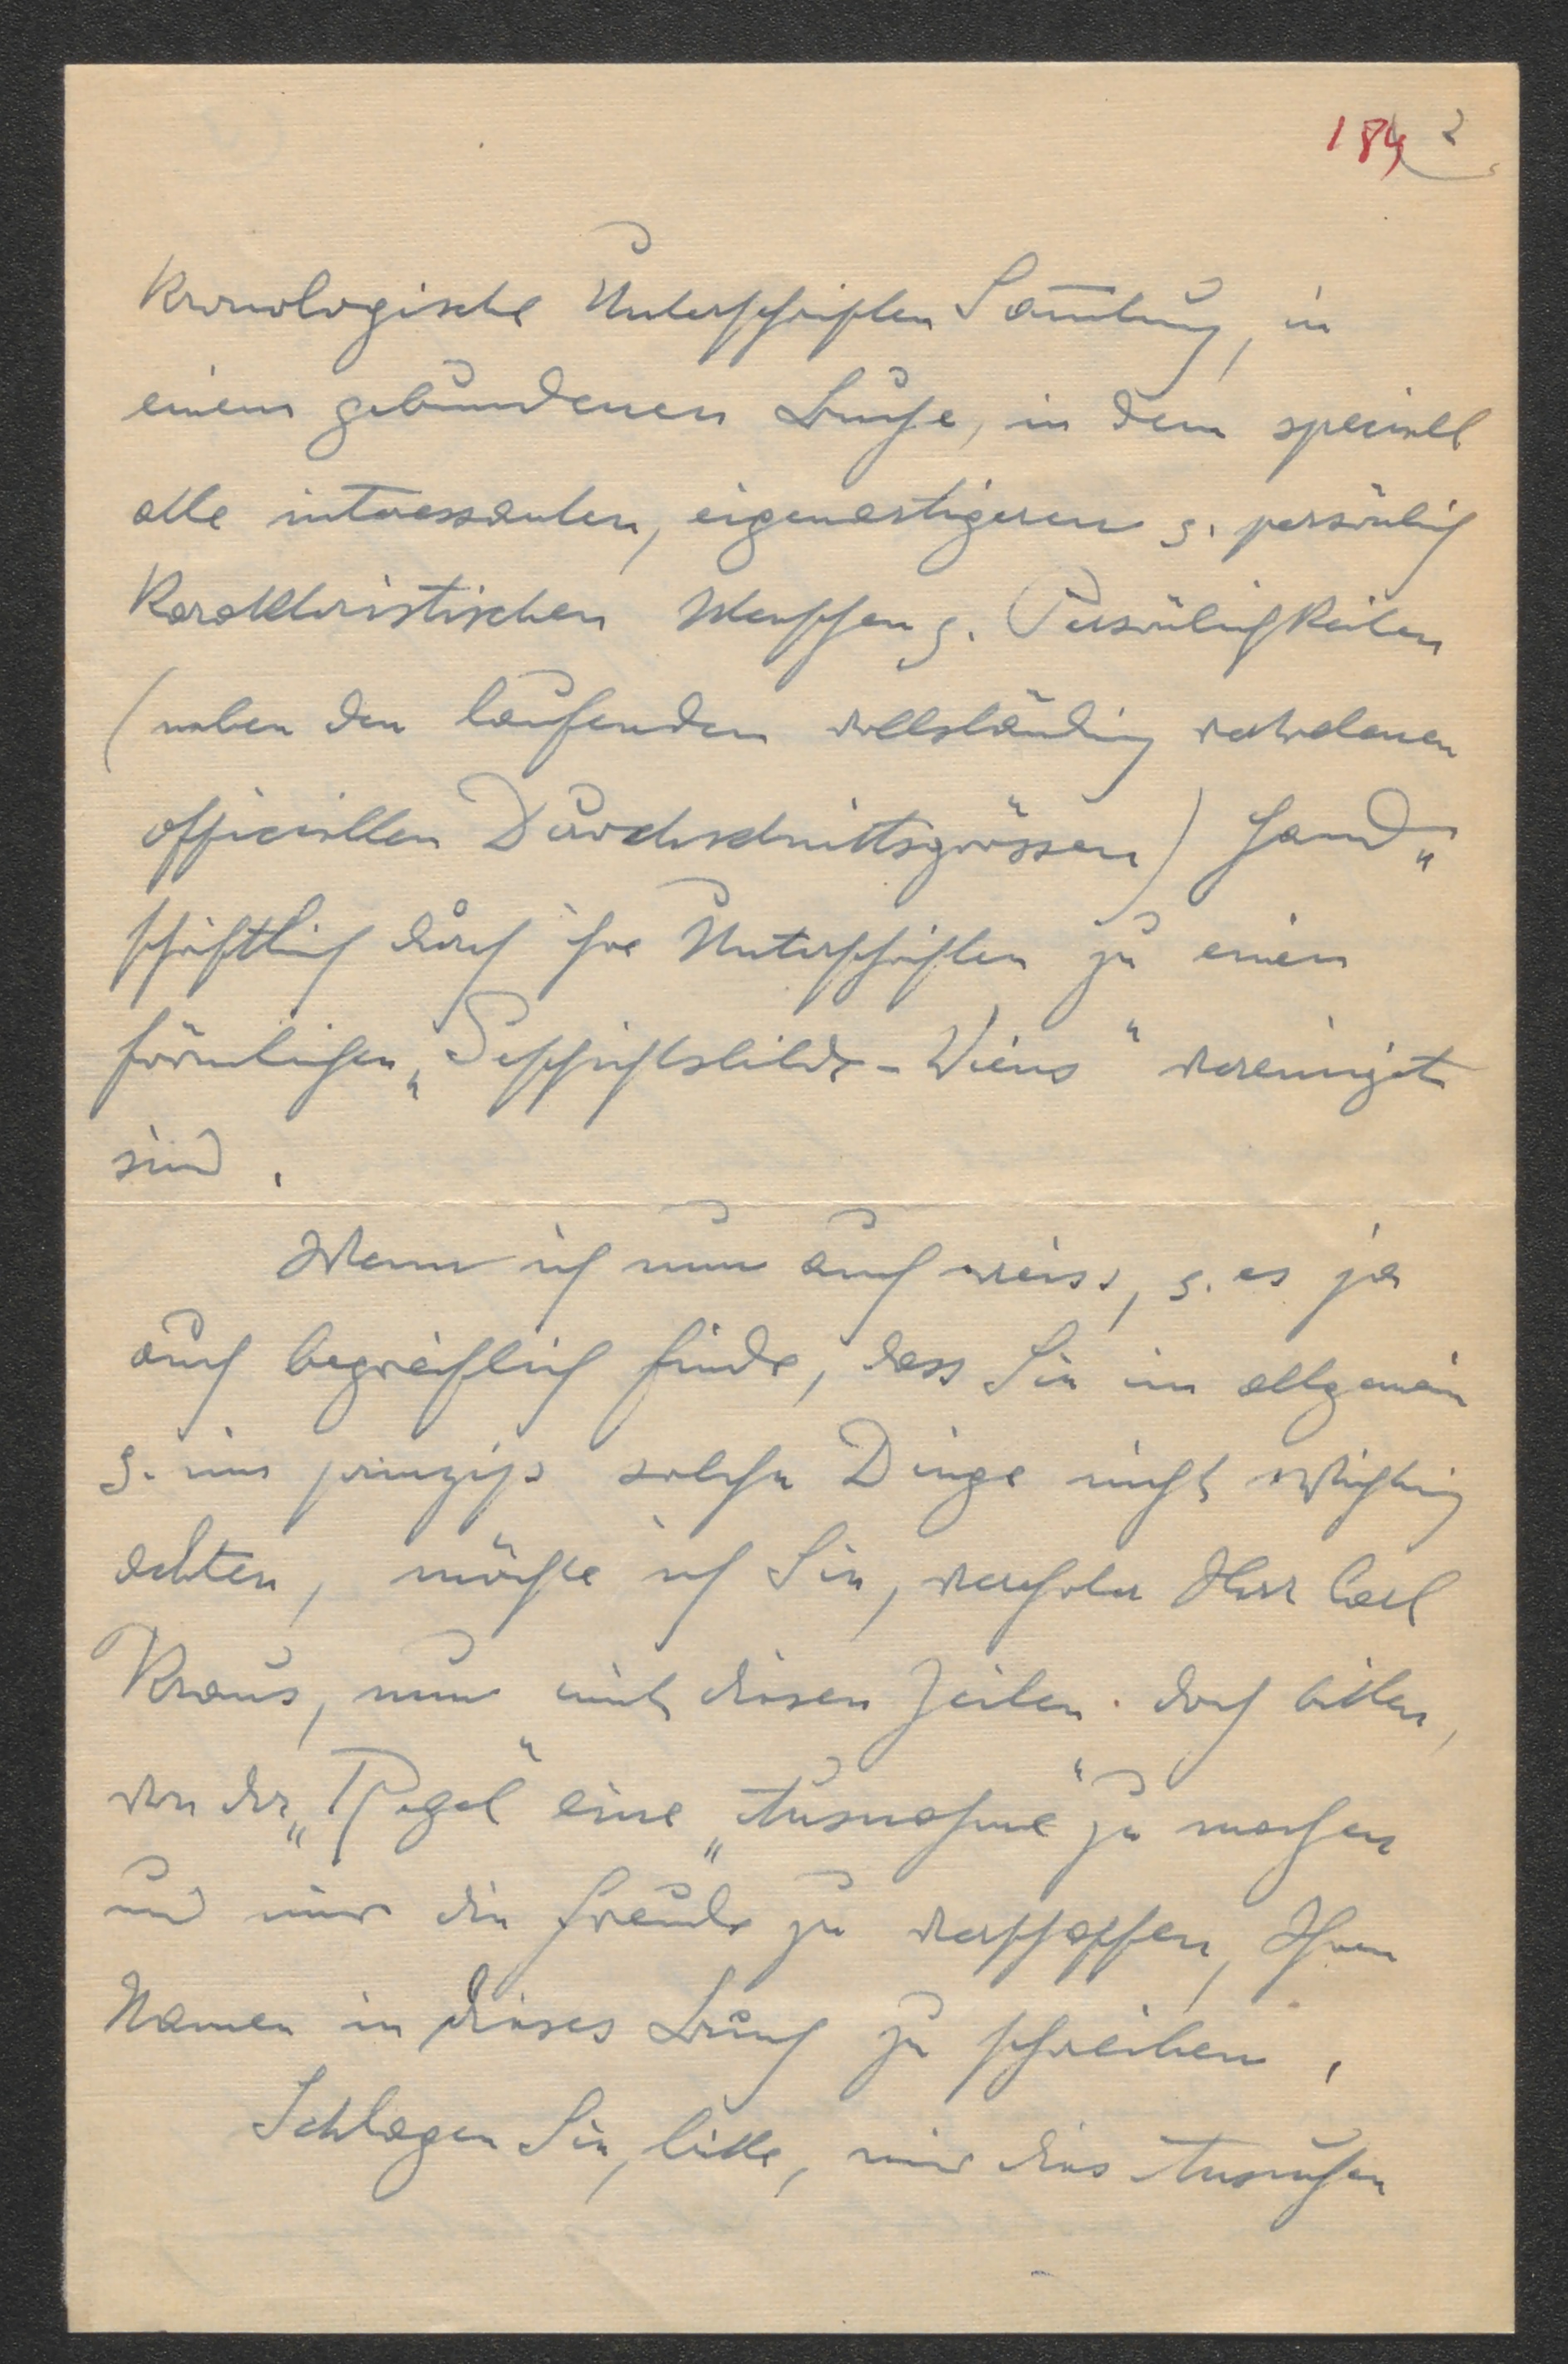 184 2
Kronologische Unterschriften Sam̅lung, in
einem gebundenen Buche, in dem speciell
alle interessanten, eigenartigeren u. persönlich
karakteristischen Menschen u. Persönlichkeiten
(neben den laufenden vollständig vertretenen
officiellen Durchschnittsgrössen) hand„
schriftlich durch ihre Unterschriften zu einem
förmlichen „Geschichtsbilde - Wiens" vereinigt
sind.
Wenn ich nun auch weiss, u. es ja
auch begreiflich finde, dass Sie im allgemein
u. ims prinzip solche Dinge nicht wichtig
achten, möchte ich Sie, verehrter Herr Carl
Kraus, nun mit diesen Zeilen doch bitten,
von der „Regel" eine „Ausnahme" zu machen
und mir die Freude zu verschaffen, Ihren
Namen in dieses Buch zu schreiben.
Schlagen Sie, bitte, mir dies Ansuchen